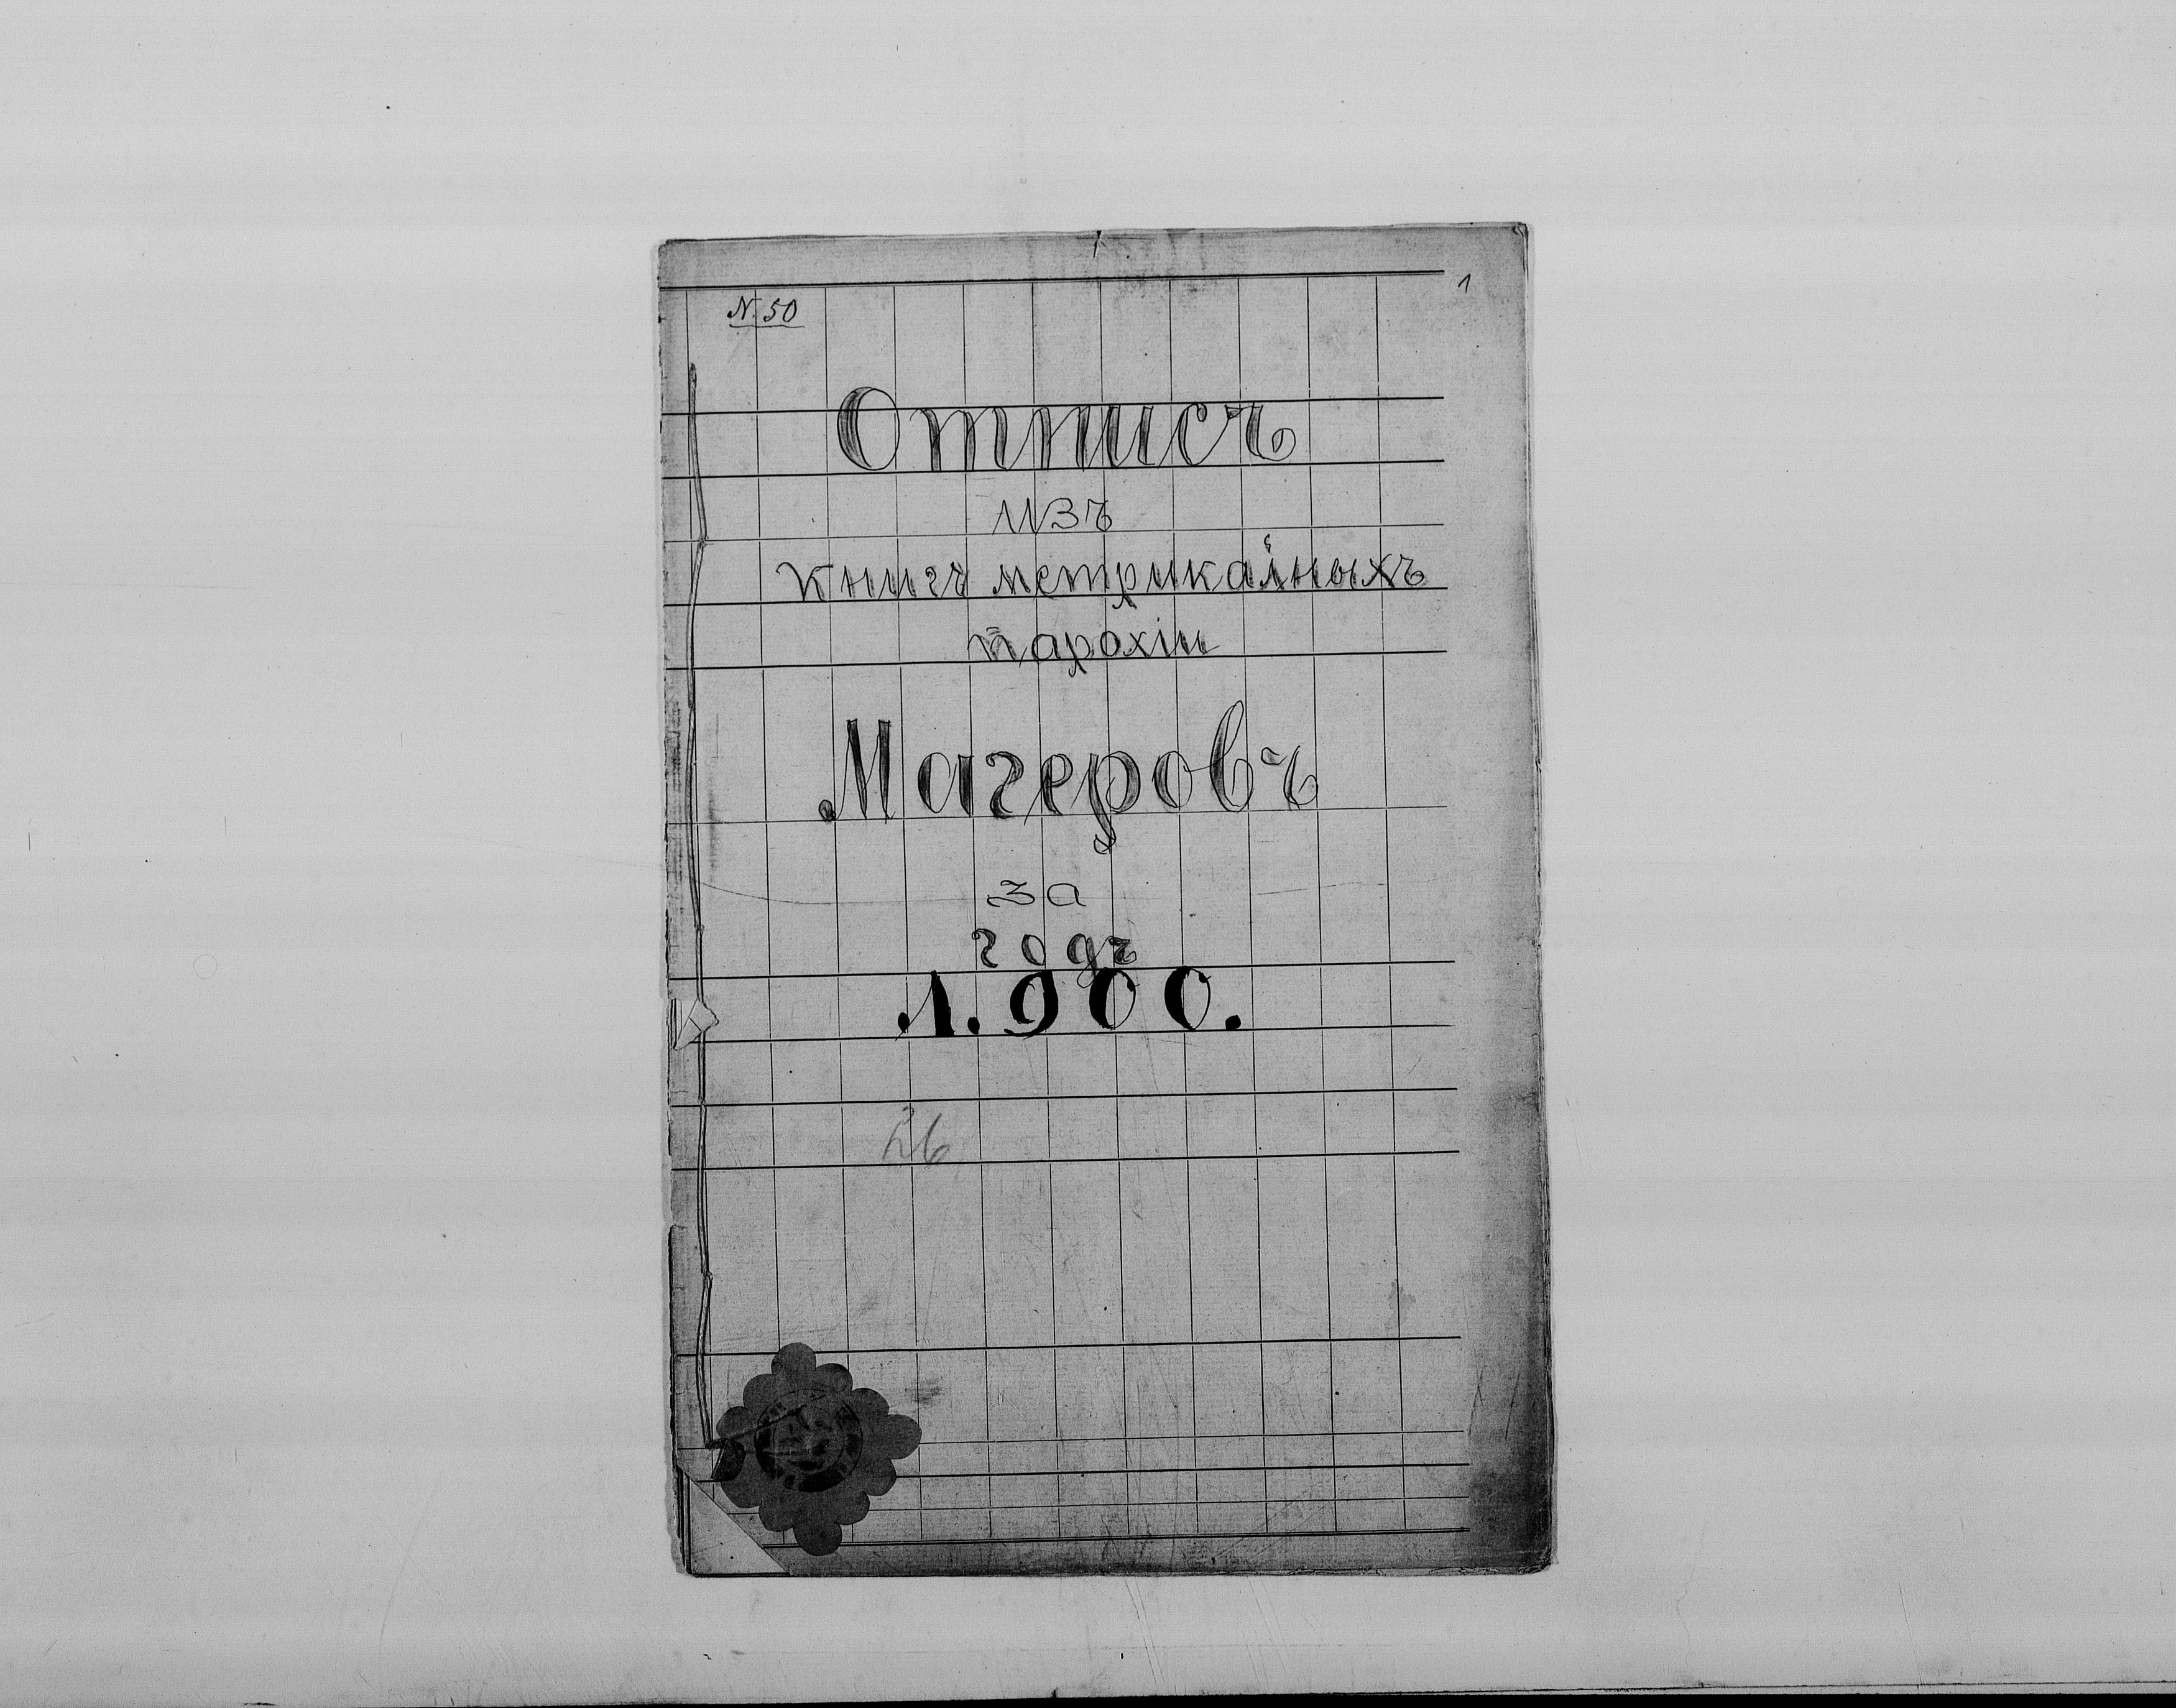 N. 50
1
Отписъ
изъ
книгъ метрикальныхъ
парохіи
Магеровъ
за
годъ
1.900.
26